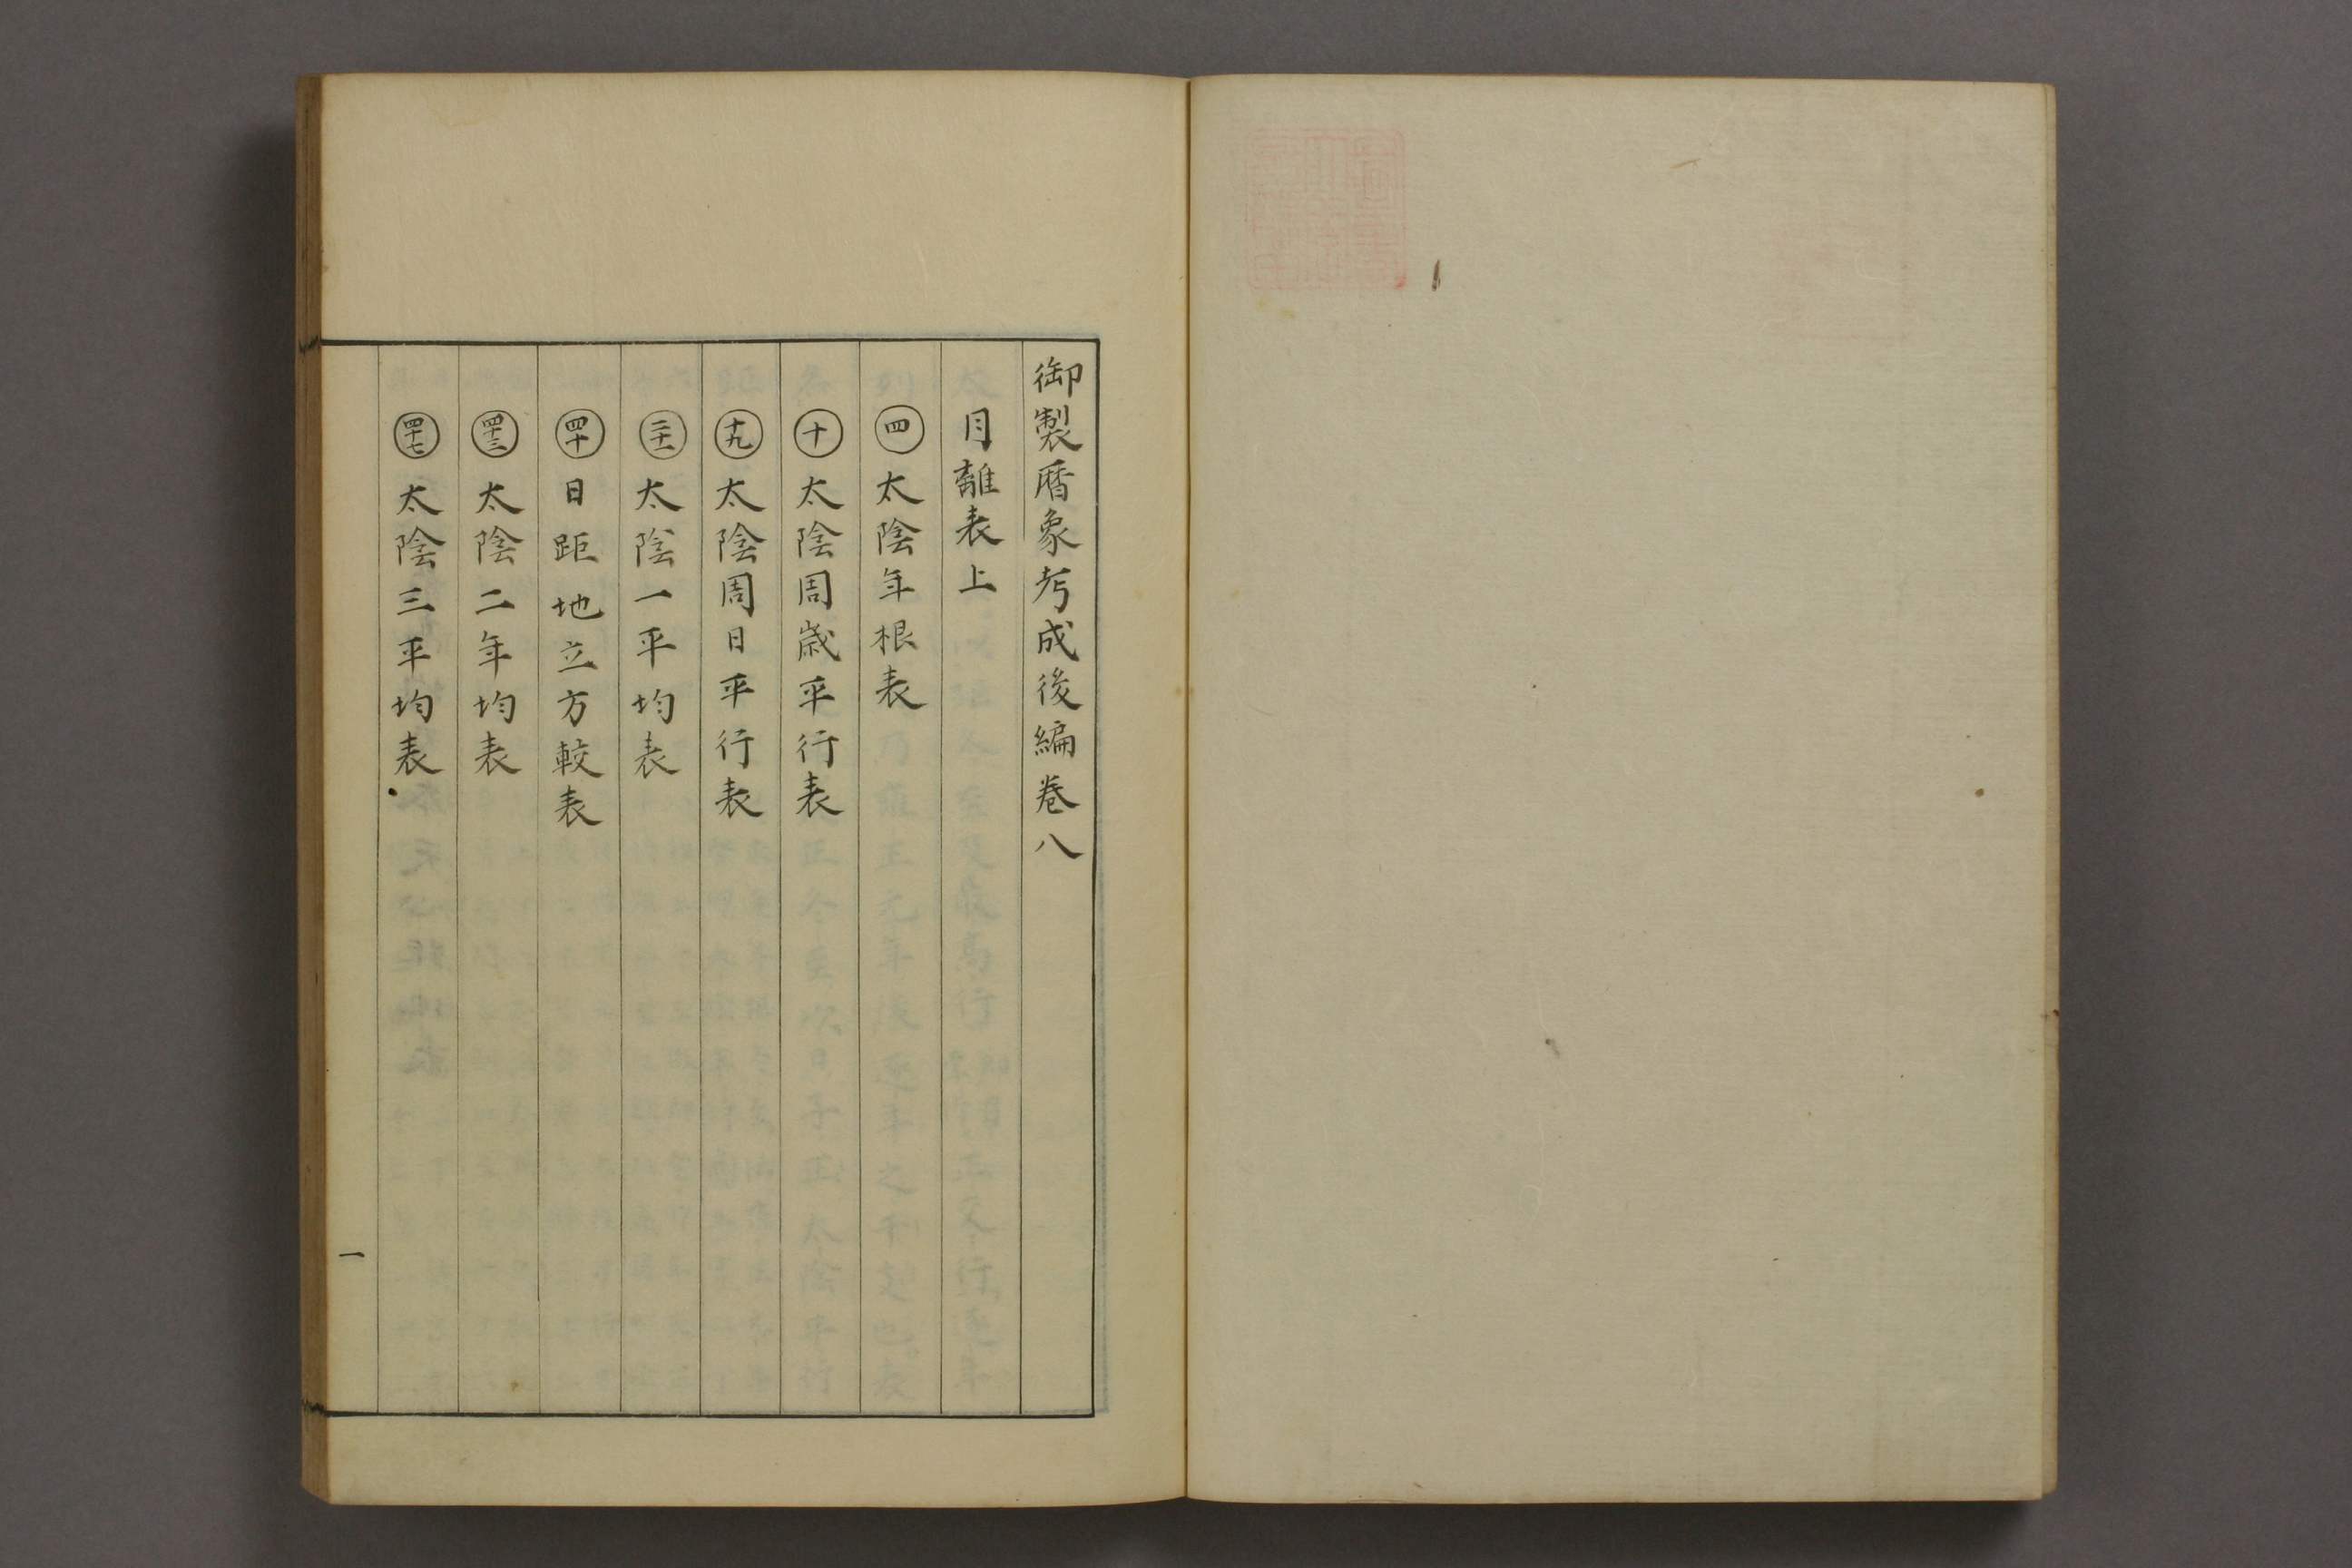 御製暦象考成後編卷八
月離表上
四 太陰年根表
十 太陰周歳平行表
十九 太陰周日平行表
二十一 太陰一平均表
四十 日距地立方較表
四十三 太陰二年均表
四十七 太陰三平均表
一